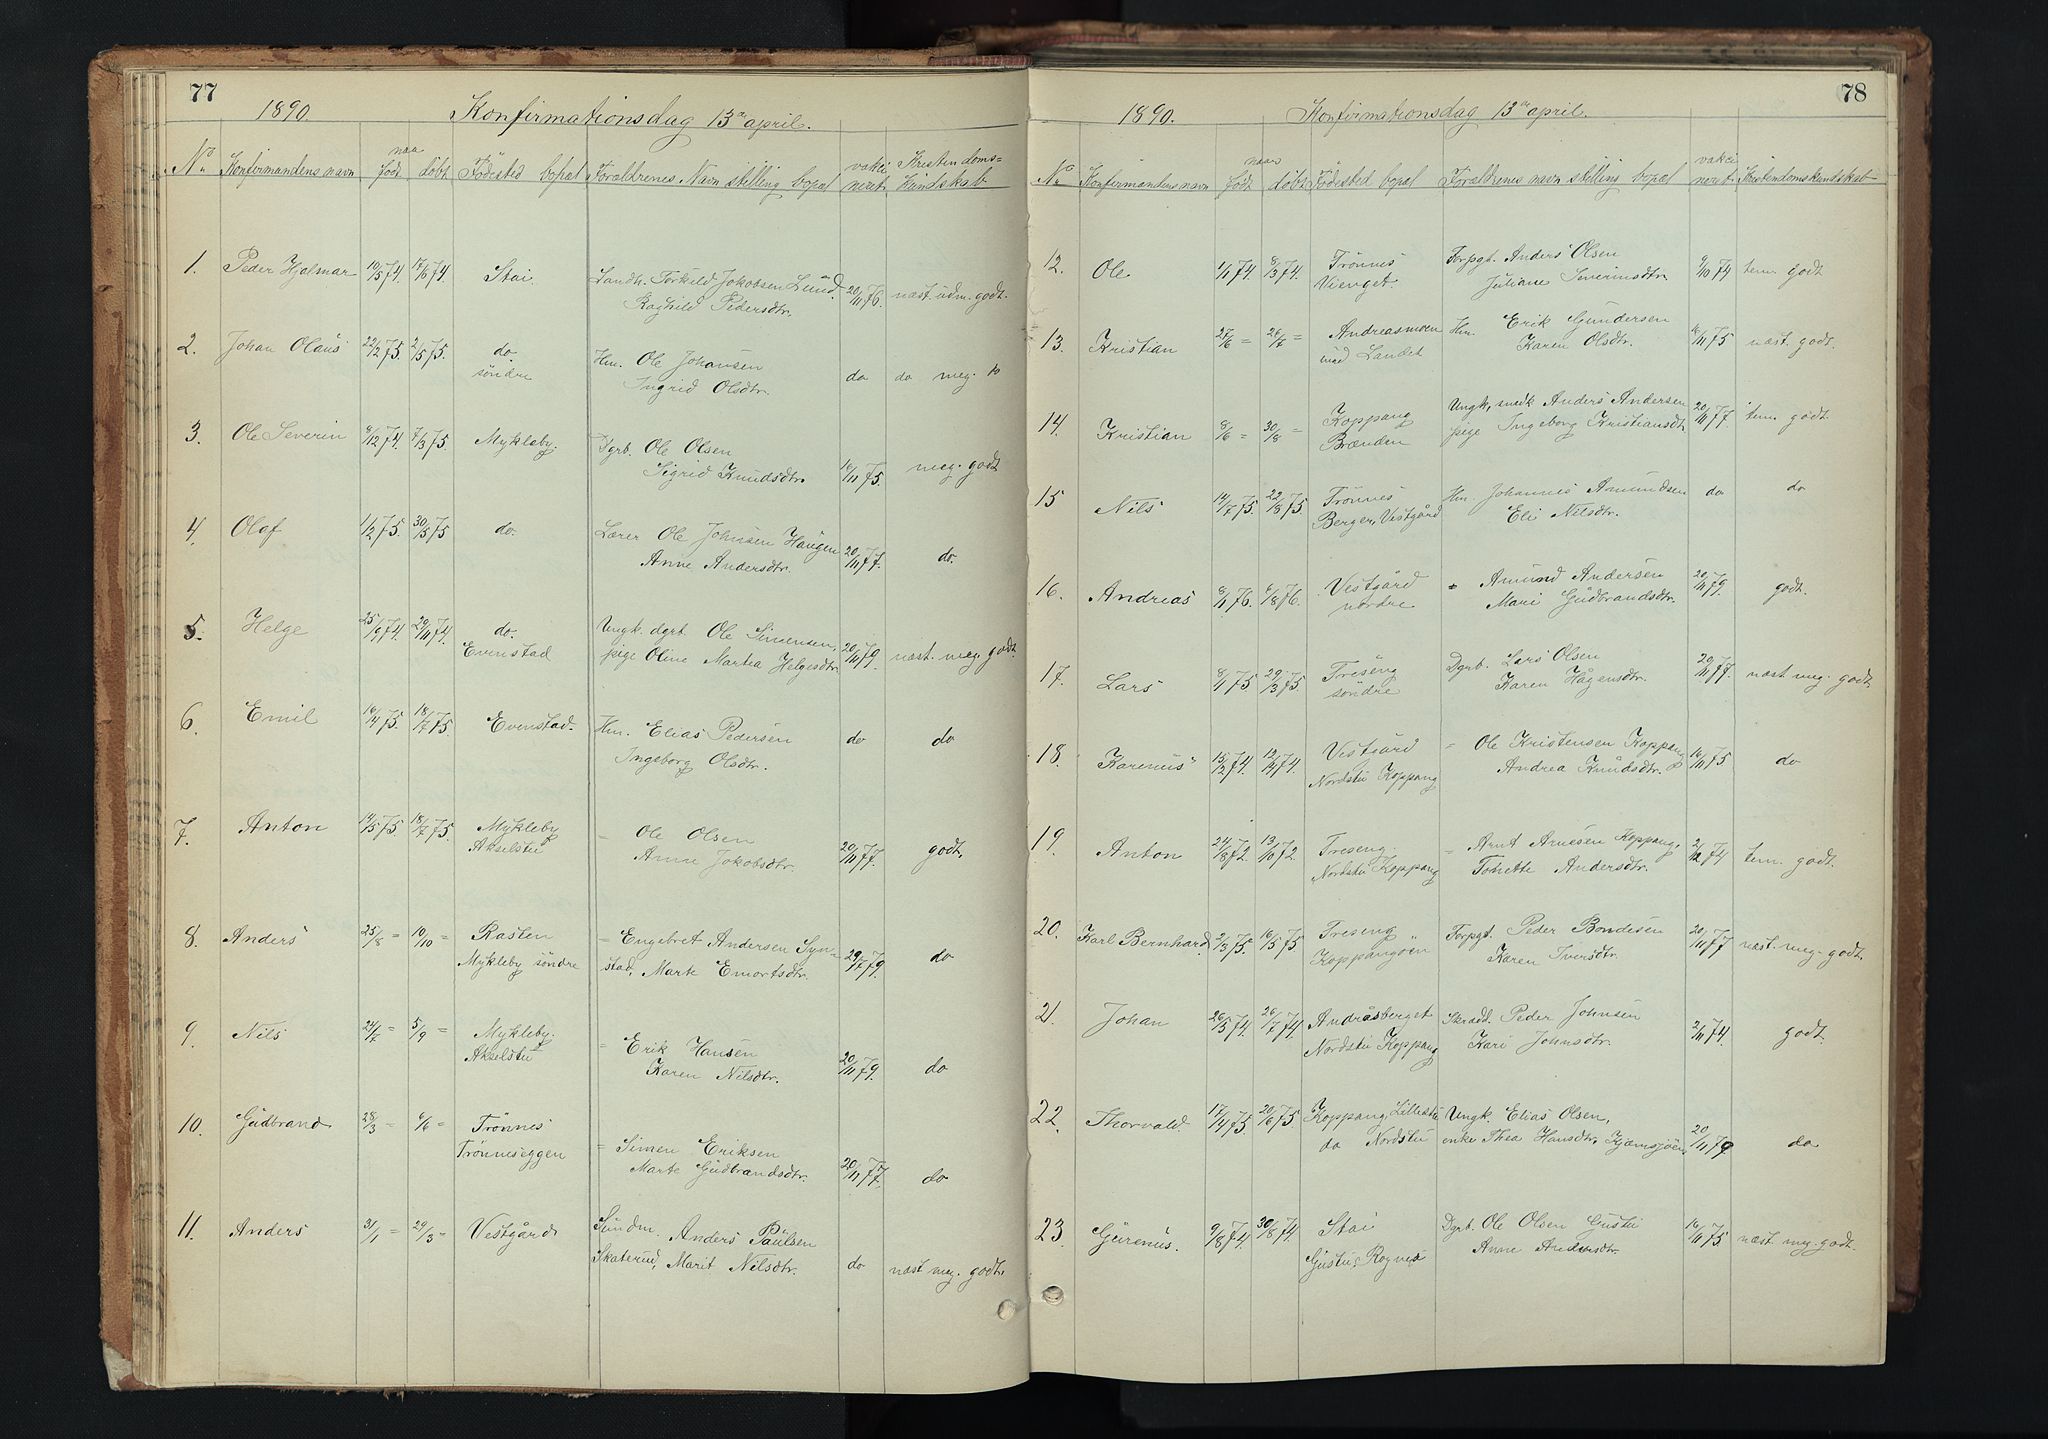 77
1890. Konfirmationsdag 13de april.
No. Konfirmandens navn født naar døbt Fødested bopæl Forældrenes Navn stilling bopæl vakcineret Kristendomskundskab
1. Peder Hjalmar 10/5 74. 17/6 74. Stai. Landh. Torkild Jakobsen Lund. 20/11 76. næst. udm. godt.
Ragnild Pedersdtr.
2. Johan Olaus 22/2 75. 2/5 75. do. Hm. Ole Johansen do do meg. do
søndre Ingrid Olsdtr.
3. Ole Severin 8/12 74. 7/3 75. Mykleby. Dgrb. Ole Olsen 16/11 75. meg. godt
Sigrid Knudsdtr.
4. Olaf 1/2 75. 30/5 75 do. Lærer Ole Johnsen Haugen 20/11 77. do.
Anne Andersdtr.
5. Helge 25/9 74. 20/11 74. do. Ungk. dgrb. Ole Simensen, 20/11 79. næst. meg. godt.
Evenstad pige Oline Martea Helgesdtr.
6. Emil 16/4 75. 18/7 75. Evenstad. Hm. Elias Pedersen do do
Ingeborg Olsdtr.
7. Anton 14/5 75. 18/7 75. Mykleby = Ole Olsen 20/11 77. godt.
Akselstu Anne Jokobsdtr.
8. Anders 25/8 = 10/10 = Rasten = Engebret Andersen Syn- 29/7 79. do
Mykleby søndre stad, Marte Emortsdtr.
9. Nils 24/7 = 5/9 = Mykleby. = Erik Hansen 20/11 79. do
Akselstu Karen Nilsdtr.
10. Gudbrand 28/3 = 6/6 = Trønnes = Simen Eriksen 20/11 77. do
Trønneseggen Marte Gudbrandsdtr.
11. Anders 31/1 = 29/3 = Vestgård Sundm. Anders Paulsen do næst meg. godt.
Skaterud, Marit Nilsdtr.
78
1890. Konfirmationsdag 13de april.
No. Konfirmandens navn født naar døbt Fødested bopæl Forældrenes navn stilling bopæl vakcineret Kristendomskundskab
12. Ole 1/1 74. 8/3 74. Trønnes Torpgt. Anders Olsen 9/10 74 tem. godt
Vienget. Juliane Severinsdtr.
13. Kristian 27/6 = 26/7 = Andreasmoen Hm. Erik Gundersen 16/11 75 næst. godt.
ned Landet Karen Olsdtr.
14. Kristian 8/6 = 30/8 = Koppang Ungk, smedk Anders Andersen 20/11 77. tem. godt.
Brænden pige Ingeborg Kristiansdtr.
15 Nils 14/7 75. 22/8 75. Trønnes Hm. Johannes Amundsen do do
Berger, Vestgård Eli Nilsdtr.
16. Andreas 8/1 76. 6/8 76. Vestgård = Amund Andersen 20/11 79. godt.
nordre Mari Gudbrandsdtr.
17. Lars 8/1 75 29/3 75. Treseng Dgrb. Lars Olsen 20/11 77. næst meg. godt.
søndre Karen Hågensdtr.
18. Karenus 15/2 74. 12/4 74. Vestgård = Ole Kristensen Koppang 16/11 75 do
Nordstu Koppang Andrea Knudsdtr.
19. Anton 24/8 72. 13/10 72. Treseng. = Arnt Arnesen Koppang. 2/12 74 tem. godt.
Nordstu Koppang Tonette Andersdtr.
20. Karl Bernhard. 2/3 75. 16/5 75 Treseng Torpgt. Peder Bondesen 20/11 77 næst. meg. godt.
Koppangøen Karen Iversdtr.
21. Johan 26/5 74. 26/7 74. Andråsberget Skræd. Peder Johnsen 2/11 74. godt.
Nordstu Koppang Kari Johnsdtr.
22. Thorvald. 17/4 75. 20/6 75 Koppang, Lillestu Ungk. Elias Olsen, 20/11 79. do
do Nordstu enke Thea Hansdtr. Kjemsjøen.
23. Gurenus. 9/8 74. 30/8 74. Stai Dgrb. Ole Olsen Gustu 16/11 75. næst. meg. godt.
Gustu, Rognes Anne Andersdtr.